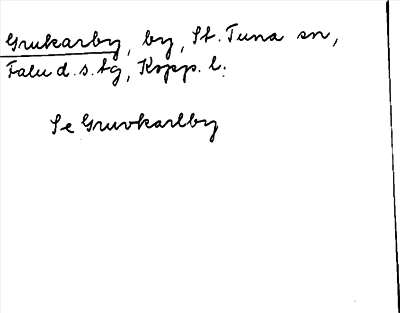 Grukarby, by, St. Tuna sn,
Falu d. s. tg, Kopp. l:
Se Gruvkarlby